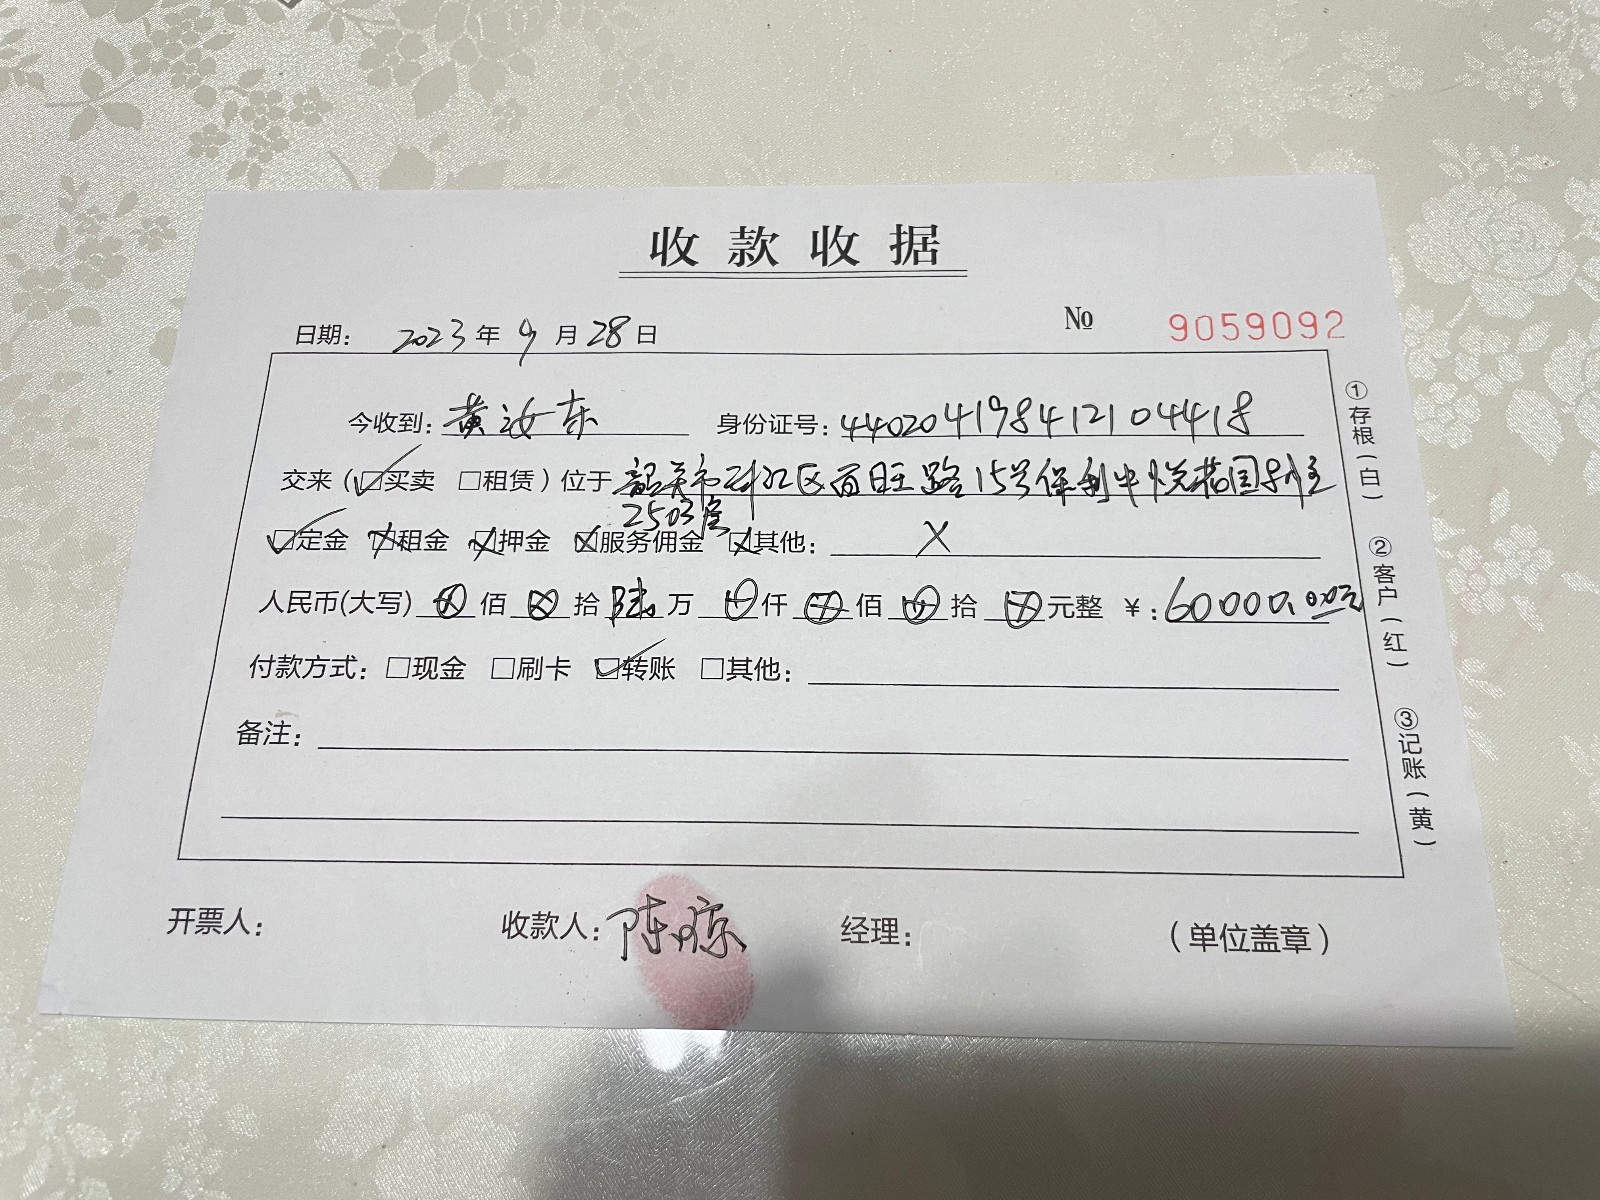 收款收据
日期： 2023 年 9 月 28 日 № 9059092
今收到：黄汝东 身份证号：440204198412104418
交来（☑买卖 □租赁）位于 韶关市浈江区百旺路15号保利中悦花园
2503房
☑定金 ☒租金 ☒押金 ☒服务佣金 ☒其他： X
人民币(大写) ⊗ 佰 ⊗ 拾 陆 万 ⊗ 仟 ⊗ 佰 ⊗ 拾 ⊗ 元整 ￥：60000.00元
付款方式：□现金 □刷卡 ☑转账 □其他：
备注：
开票人： 收款人：陈琼 经理： （单位盖章）
①存根（白）
②客户（红）
③记账（黄）